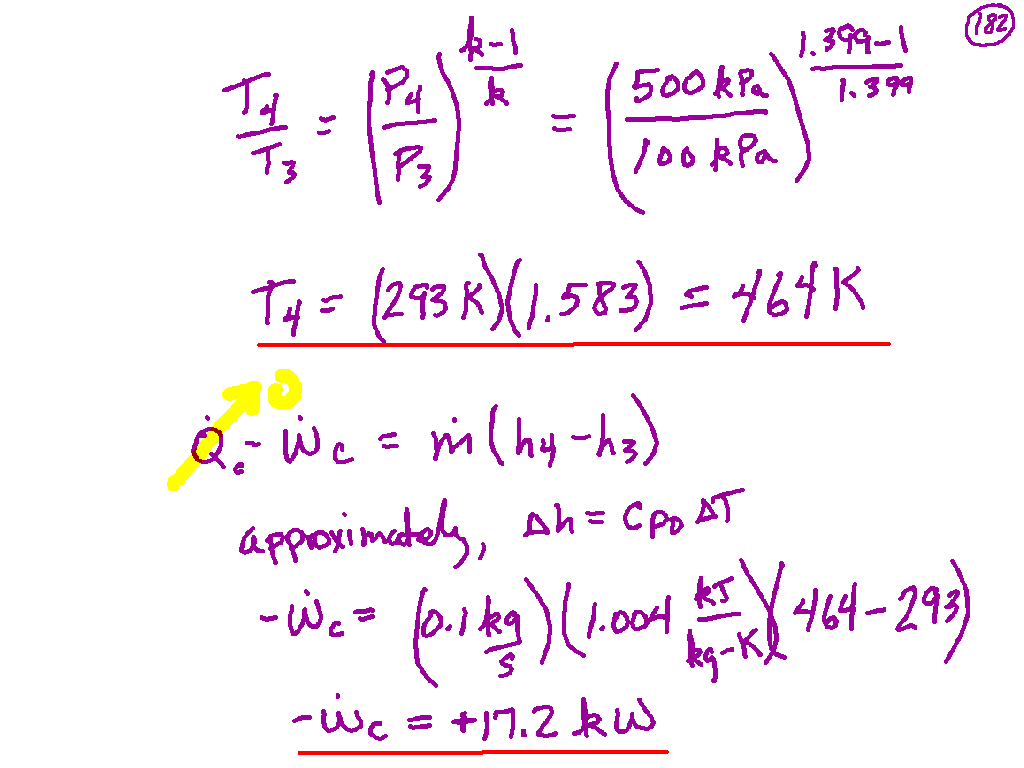 182
T₄/T₃ = (P₄/P₃)^((k-1)/k) = (500 kPa/100 kPa)^((1.399-1)/1.399)
T₄ = (293 K)(1.583) = 464 K
Q̇c - Ẇc = ṁ(h₄-h₃)
0
approximately, Δh = Cp₀ ΔT
-Ẇc = (0.1 kg/s)(1.004 kJ/kg-K)(464-293)
-Ẇc = +17.2 kW